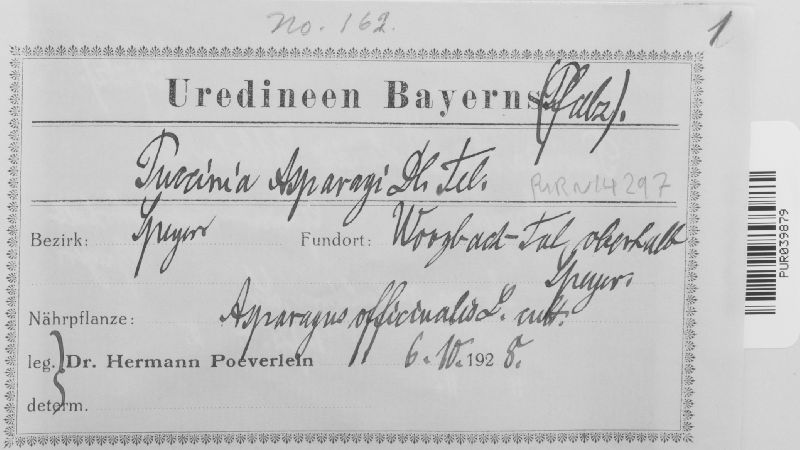 No. 162.
1
Uredineen Bayerns (Pfalz).
Puccinia Asparagi DC. Tul.
PUR N14297
Bezirk: Speyer Fundort: Woogbach-Tal, oberhalb
Speyer.
Nährpflanze: Asparagus officinalis L. cult.
leg. } Dr. Hermann Poeverlein 6. IX. 1928.
determ.
PUR039879